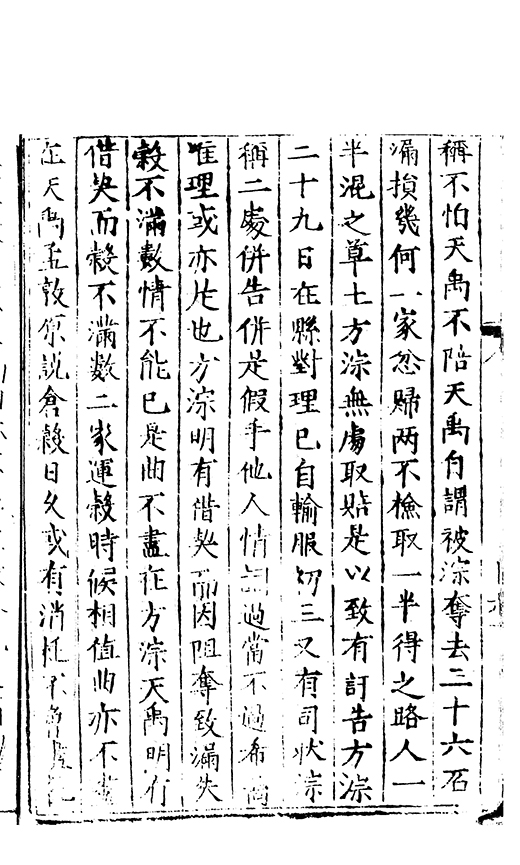 稱不怕天禹不陪天禹自謂被淙奪去三十六石
漏損幾何一家忿歸两不檢取一半得之路人一
半混之草土方淙無虜取貼是以致有訂告方淙
二十九日在縣對理已自輸服初三又有司狀淙
稱二處併告併是假手他人情詞過當不過希啚
準理或亦片也方淙明有借契而因阻奪致漏失
穀不滿數情不能已是曲不盡在方淙天禹明有
借契而穀不滿數二家運穀時候相值曲亦不盡
在天禹孟敦原說倉穀日久或有消耗不